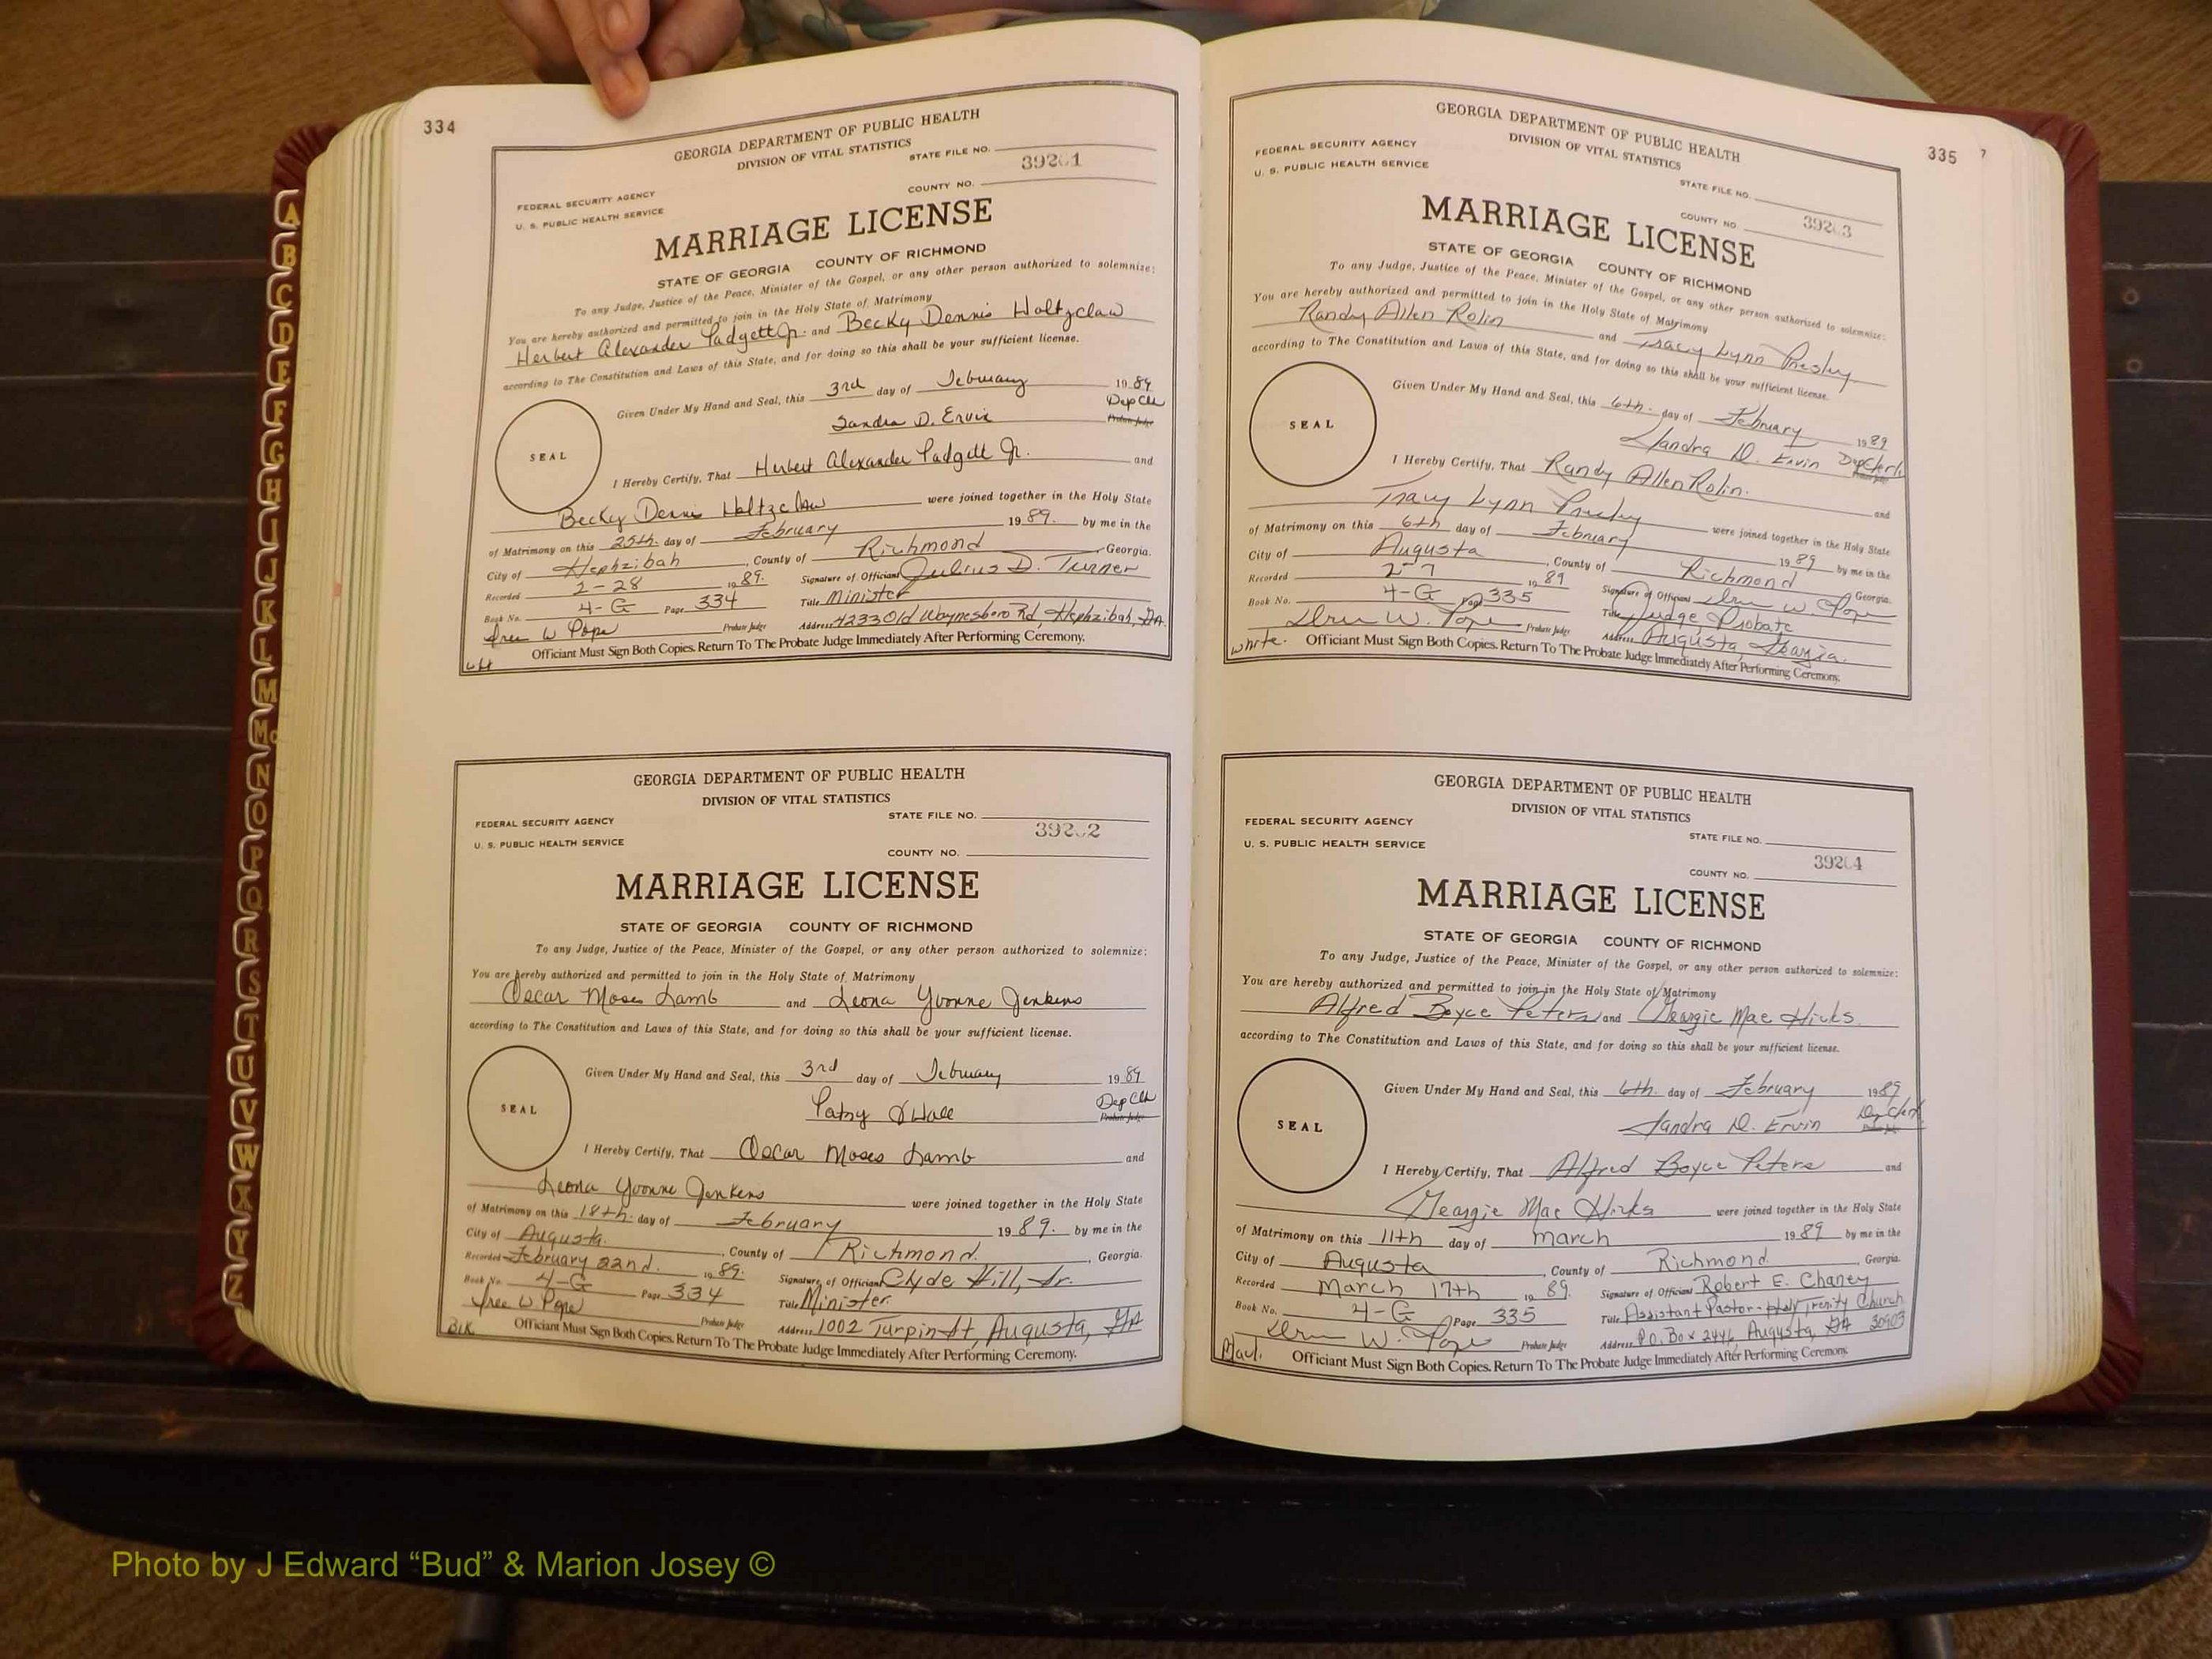 334
GEORGIA DEPARTMENT OF PUBLIC HEALTH
DIVISION OF VITAL STATISTICS
STATE FILE NO.
39201
COUNTY NO.
FEDERAL SECURITY AGENCY
U. S. PUBLIC HEALTH SERVICE
MARRIAGE LICENSE
STATE OF GEORGIA COUNTY OF RICHMOND
To any Judge, Justice of the Peace, Minister of the Gospel, or any other person authorized to solemnize:
You are hereby authorized and permitted to join in the Holy State of Matrimony
Herbert Alexander Padgett Jr. and Becky Dennis Holtzclaw
according to The Constitution and Laws of this State, and for doing so this shall be your sufficient license.
Given Under My Hand and Seal, this 3rd day of February 1989
Sandra D. Ervin Dep Clk
Probate Judge
SEAL
I Hereby Certify, That Herbert Alexander Padgett Jr. and
Becky Dennis Holtzclaw were joined together in the Holy State
of Matrimony on this 25th. day of February 1989. by me in the
City of Hephzibah, County of Richmond Georgia.
Recorded 2-28 1989. Signature of Official Julius D. Turner
Book No. 4-G Page 334 Title Minister
Probate Judge Address 4233 Old Waynesboro Rd, Hephzibah, GA.
Officiant Must Sign Both Copies. Return To The Probate Judge Immediately After Performing Ceremony.
GEORGIA DEPARTMENT OF PUBLIC HEALTH
DIVISION OF VITAL STATISTICS
STATE FILE NO.
39202
FEDERAL SECURITY AGENCY
U. S. PUBLIC HEALTH SERVICE
COUNTY NO.
MARRIAGE LICENSE
STATE OF GEORGIA COUNTY OF RICHMOND
To any Judge, Justice of the Peace, Minister of the Gospel, or any other person authorized to solemnize:
You are hereby authorized and permitted to join in the Holy State of Matrimony
Oscar Moses Lamb and Leona Yvonne Jenkins
according to The Constitution and Laws of this State, and for doing so this shall be your sufficient license.
Given Under My Hand and Seal, this 3rd day of February 1989
Patsy Dep Clk
Probate Judge
SEAL
I Hereby Certify, That Oscar Moses Lamb and
Leona Yvonne Jenkins were joined together in the Holy State
of Matrimony on this 18th. day of February 1989. by me in the
City of Augusta. County of Richmond. Georgia.
Recorded February 22nd. 1989. Signature of Official Clyde Hill, Sr.
Book No. 4-G Page 334 Title Minister.
Probate Judge Address 1002 Turpin St, Augusta, GA
Blk. Officiant Must Sign Both Copies. Return To The Probate Judge Immediately After Performing Ceremony.
335
GEORGIA DEPARTMENT OF PUBLIC HEALTH
DIVISION OF VITAL STATISTICS
FEDERAL SECURITY AGENCY
U. S. PUBLIC HEALTH SERVICE
STATE FILE NO.
39203
COUNTY NO.
MARRIAGE LICENSE
STATE OF GEORGIA COUNTY OF RICHMOND
To any Judge, Justice of the Peace, Minister of the Gospel, or any other person authorized to solemnize:
You are hereby authorized and permitted to join in the Holy State of Matrimony
Randy Allen Rolin and Tracy Lynn Presley
according to The Constitution and Laws of this State, and for doing so this shall be your sufficient license.
Given Under My Hand and Seal, this 6th. day of February 1989
Sandra D. Ervin Dep Clerk
Probate Judge
SEAL
I Hereby Certify, That Randy Allen Rolin. and
Tracy Lynn Presley were joined together in the Holy State
of Matrimony on this 6th day of February 1989 by me in the
City of Augusta, County of Richmond Georgia.
Recorded 2-7 1989 Signature of Official W. Pope
Book No. 4-G Page 335 Title Judge Probate
W. Pope Probate Judge Address Augusta, Georgia.
White. Officiant Must Sign Both Copies. Return To The Probate Judge Immediately After Performing Ceremony.
GEORGIA DEPARTMENT OF PUBLIC HEALTH
DIVISION OF VITAL STATISTICS
FEDERAL SECURITY AGENCY
U. S. PUBLIC HEALTH SERVICE
STATE FILE NO.
39204
COUNTY NO.
MARRIAGE LICENSE
STATE OF GEORGIA COUNTY OF RICHMOND
To any Judge, Justice of the Peace, Minister of the Gospel, or any other person authorized to solemnize:
You are hereby authorized and permitted to join in the Holy State of Matrimony
Alfred Boyce Peters and Georgie Mae Hicks
according to The Constitution and Laws of this State, and for doing so this shall be your sufficient license.
Given Under My Hand and Seal, this 6th. day of February 1989
Sandra D. Ervin Dep Clerk
SEAL
I Hereby Certify, That Alfred Boyce Peters and
Georgie Mae Hicks were joined together in the Holy State
of Matrimony on this 11th day of March 1989 by me in the
City of Augusta, County of Richmond. Georgia.
Recorded March 17th 1989. Signature of Official Robert E. Chaney
Book No. 4-G Page 335 Title Assistant Pastor - Holy Trinity Church
W. Pope Probate Judge Address P.O. Box 2446, Augusta, GA 30903
Officiant Must Sign Both Copies. Return To The Probate Judge Immediately After Performing Ceremony.
A
B
C
D
E
F
G
H
I
J
K
L
M
Mc
N
O
P
Q
R
S
T
U
V
W
X
Y
Z
Photo by J Edward “Bud” & Marion Josey ©